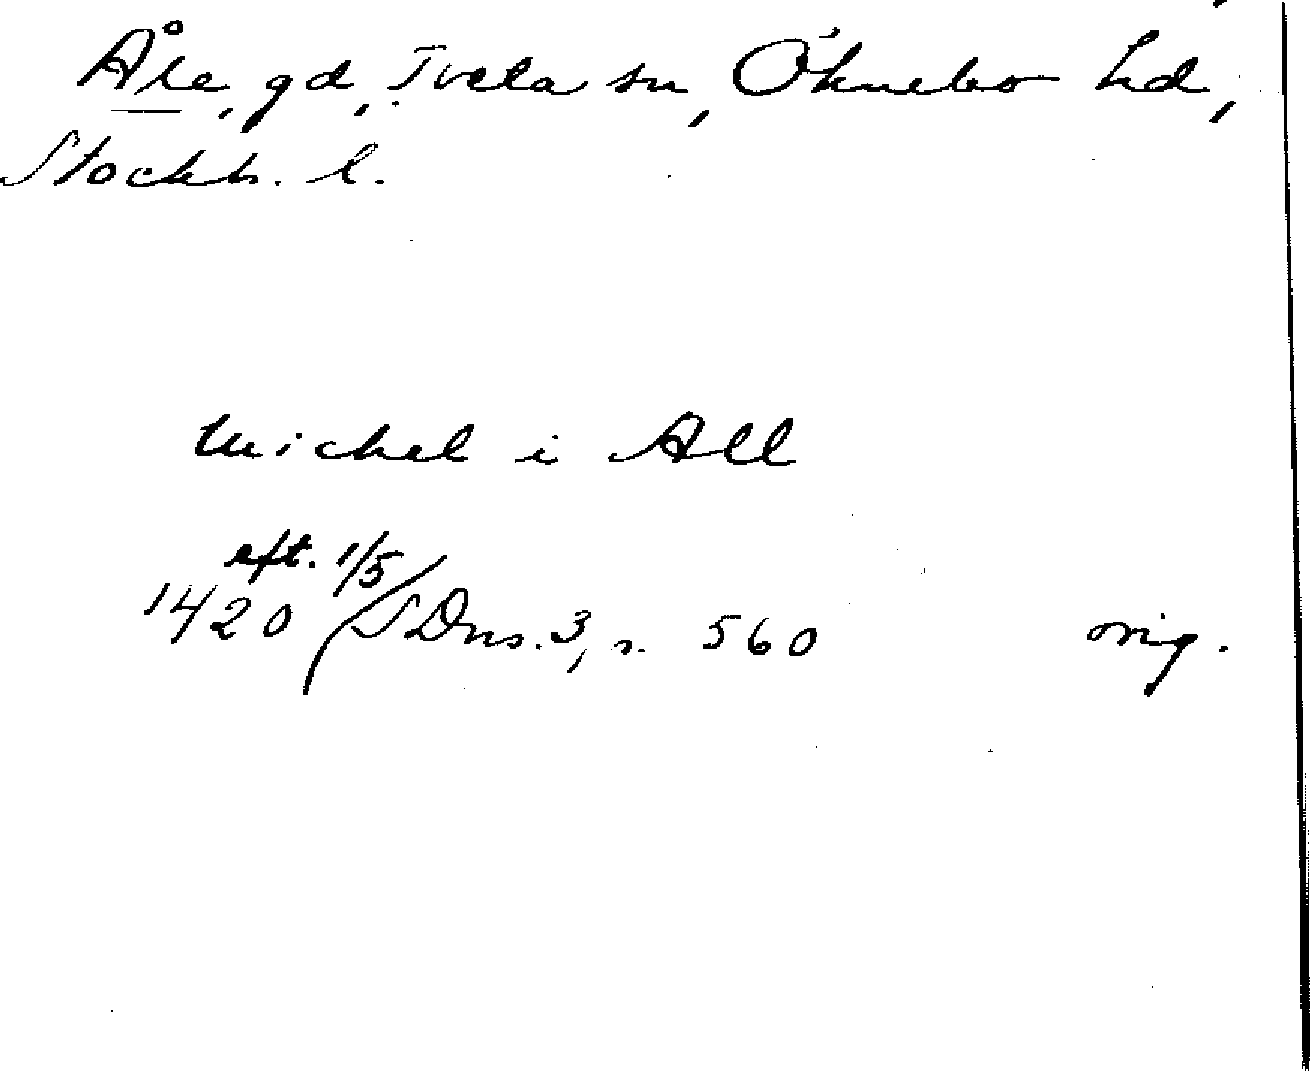 Åle, gd, Tveta sn, Öknebo hd,
Stockh. l.
Michel i All
eft. 1/5
1420 / SDns. 3, s. 560 orig.